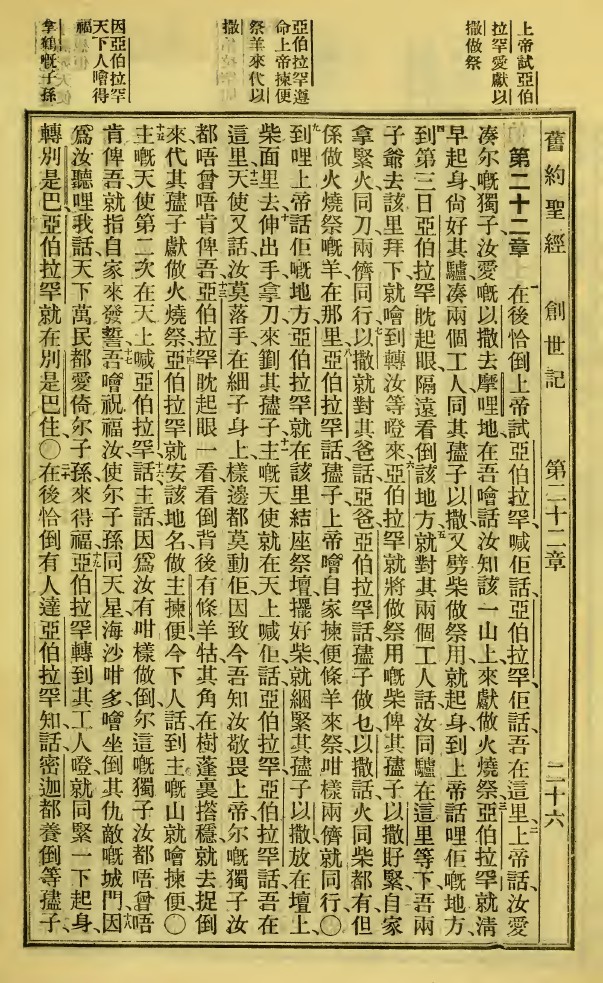 上帝試亞伯
拉罕愛獻以
撒做祭
亞伯拉罕遵
命上帝揀便
祭羊來代以
撒
因亞伯拉罕
天下人噲得
福
拿鶴嘅子孫
舊約聖經 創世記 第二十二章 二十六
第二十二章 一在後恰倒上帝試亞伯拉罕、喊佢話、亞伯拉罕、佢話、吾在這里、二上帝話、汝愛
凑尔嘅獨子、汝愛嘅以撒、去摩哩地、在吾噲話汝知該一山上、來獻做火燒祭、三亞伯拉罕就淸
早起身、尙好其驢、凑兩個工人、同其孻子以撒、又劈柴做祭用、就起身到上帝話哩佢嘅地方、
四到第三日、亞伯拉罕眈起眼、隔遠看倒該地方、五就對其兩個工人話、汝同驢在這里等下、吾兩
子爺去該里拜下、就噲到轉汝等嶝來、六亞伯拉罕就將做祭用嘅柴、俾其孻子以撒𢫦緊、自家
拿緊火同刀、兩儕同行、七以撒就對其爸話、亞爸、亞伯拉罕話、孻子做乜、以撒話、火同柴都有、但
係做火燒祭嘅羊在那里、八亞伯拉罕話、孻子、上帝噲自家揀便條羊來祭、咁樣兩儕就同行、〇
九到哩上帝話佢嘅地方、亞伯拉罕就在該里結座祭壇、擺好柴、就綑緊其孻子以撒、放在壇上
柴面里去、十伸出手拿刀來劏其孻子、十一主嘅天使就在天上喊佢話、亞伯拉罕、亞伯拉罕話、吾在
這里、十二天使又話、汝莫落手在細子身上、樣邊都莫動佢、因致今吾知汝敬畏上帝、尔嘅獨子、汝
都唔曾唔肯俾吾、十三亞伯拉罕眈起眼一看、看倒背後有條羊牯、其角在樹蓬裏搭穩、就去捉倒
來、代其孻子獻做火燒祭、十四亞伯拉罕就安該地名做主揀便、今下人話、到主嘅山就噲揀便、〇
十五主嘅天使第二次在天上喊亞伯拉罕、十六話、主話、因爲汝有咁樣做倒、尔這嘅獨子汝都唔曾唔
肯俾吾、就指自家來發誓、十七吾噲祝福汝、使尔子孫同天星海沙咁多、噲坐倒其仇敵嘅城門、十八因
爲汝聽哩我話、天下萬民都愛倚尔子孫來得福、十九亞伯拉罕轉到其工人嶝、就同緊一下起身、
轉別是巴、亞伯拉罕就在別是巴住、〇二十在後恰倒有人達亞伯拉罕知、話、密迦都養倒等孻子、